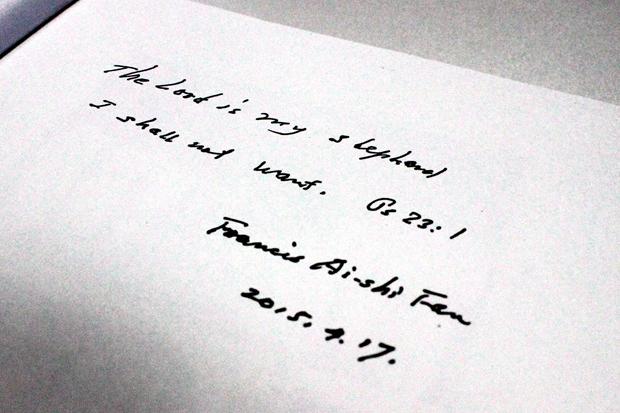 The Lord is my shepherd
I shall not want. Ps 23:1
Francis Ai-shi Fan
2015.4.17.